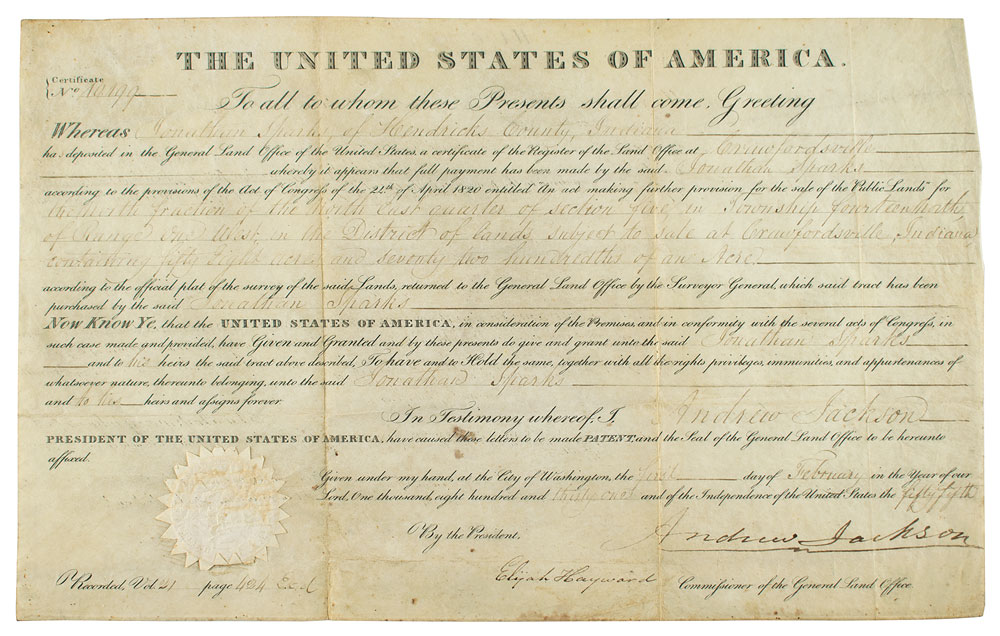 THE UNITED STATES OF AMERICA.
Certificate
No
To all to whom these Presents shall come, Greeting
Whereas Jonathan Sparks, of Hendricks County, Indiana
has deposited in the General Land Office of the United States, a certificate of the Register of the Land Office at Crawfordsville
whereby it appears that full payment has been made by the said Jonathan Sparks
according to the provisions of the Act of Congress of the 24th of April 1820 entitled "An act making further provision for the sale of the Public Lands" for
the North fraction of the North East quarter of section five, in Township fourteen North
of Range One West, in the District of lands subject to sale at Crawfordsville, Indiana
containing fifty eight acres and seventy two hundredths of an Acre
according to the official plat of the survey of the said Lands, returned to the General Land Office by the Surveyor General, which said tract has been
purchased by the said Jonathan Sparks
Now Know Ye, that the UNITED STATES OF AMERICA, in consideration of the Premises, and in conformity with the several acts of Congress, in
such case made and provided, have Given and Granted and by these presents do give and grant unto the said Jonathan Sparks
and to his heirs the said tract above described, To have and to Hold the same, together with all the rights, privileges, immunities, and appurtenances of
whatsoever nature, thereunto belonging, unto the said Jonathan Sparks
and to his heirs and assigns forever.
In Testimony whereof, I, Andrew Jackson
PRESIDENT OF THE UNITED STATES OF AMERICA, have caused these Letters to be made PATENT, and the Seal of the General Land Office to be hereunto
affixed.
Given under my hand, at the City of Washington, the first day of February in the Year of our
Lord, One thousand, eight hundred and thirty one and of the Independence of the United States the fifty fifth
Andrew Jackson
By the President.
Elijah Hayward Commissioner of the General Land Office.
Recorded, Vol. 21 page 424